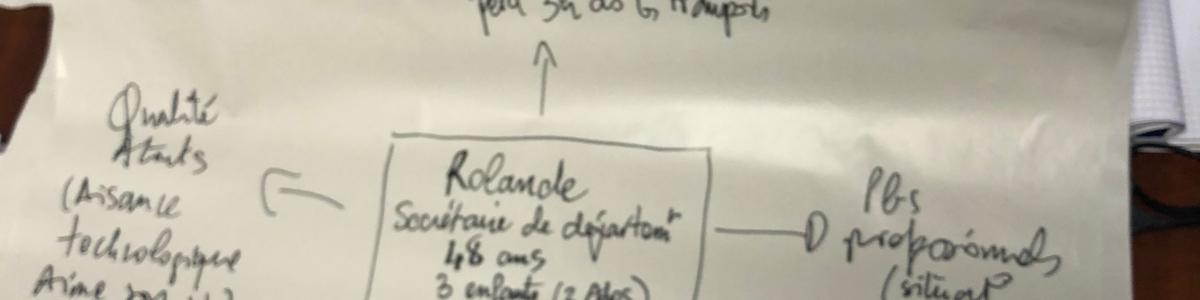 perd 3h ds les transports
Qualité
Atouts
(Aisance
technologique
Aime son
Rolande
Secrétaire de départemt
48 ans
3 enfants (2 Ados)
Pbs
professionnels
(situat°